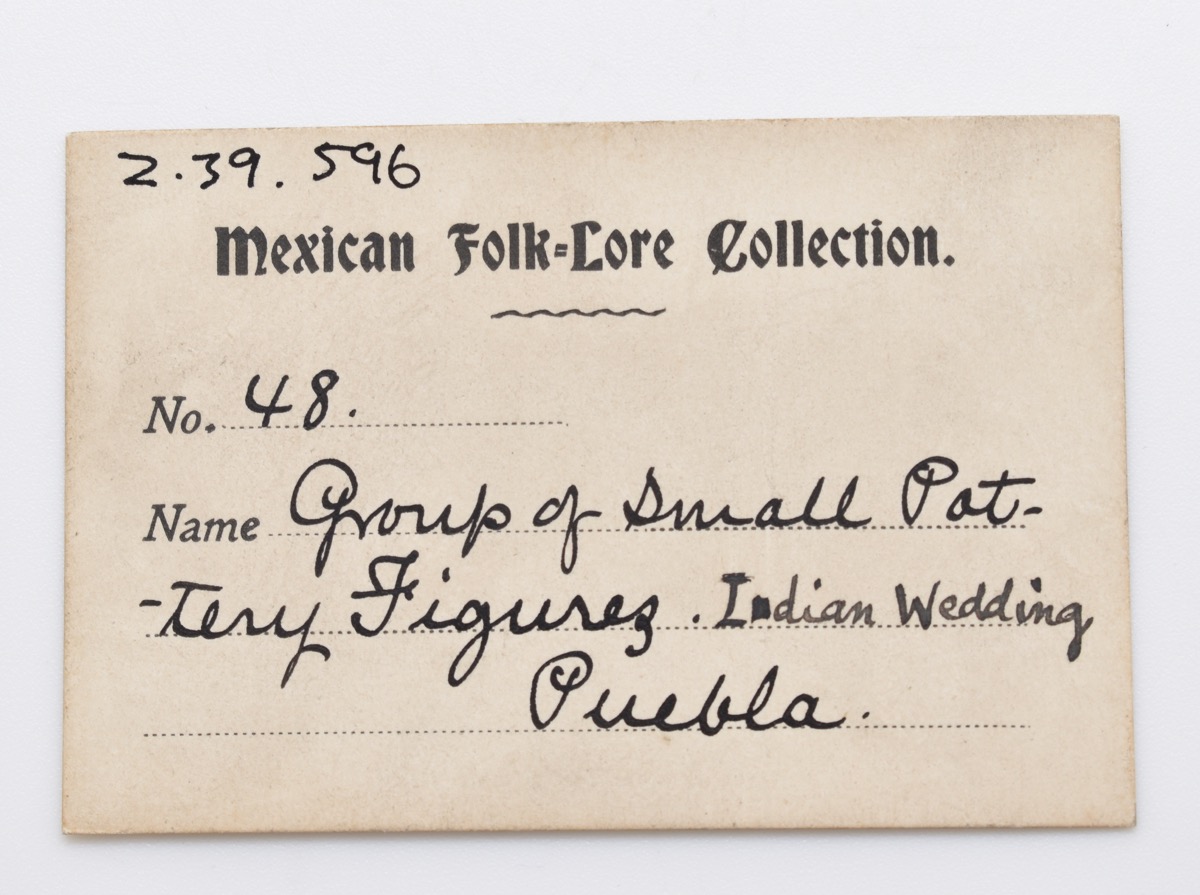 2.39.596
Mexican Folk-Lore Collection.
No. 48.
Name Group of Small Pot-
-tery Figures. Indian Wedding
Puebla.